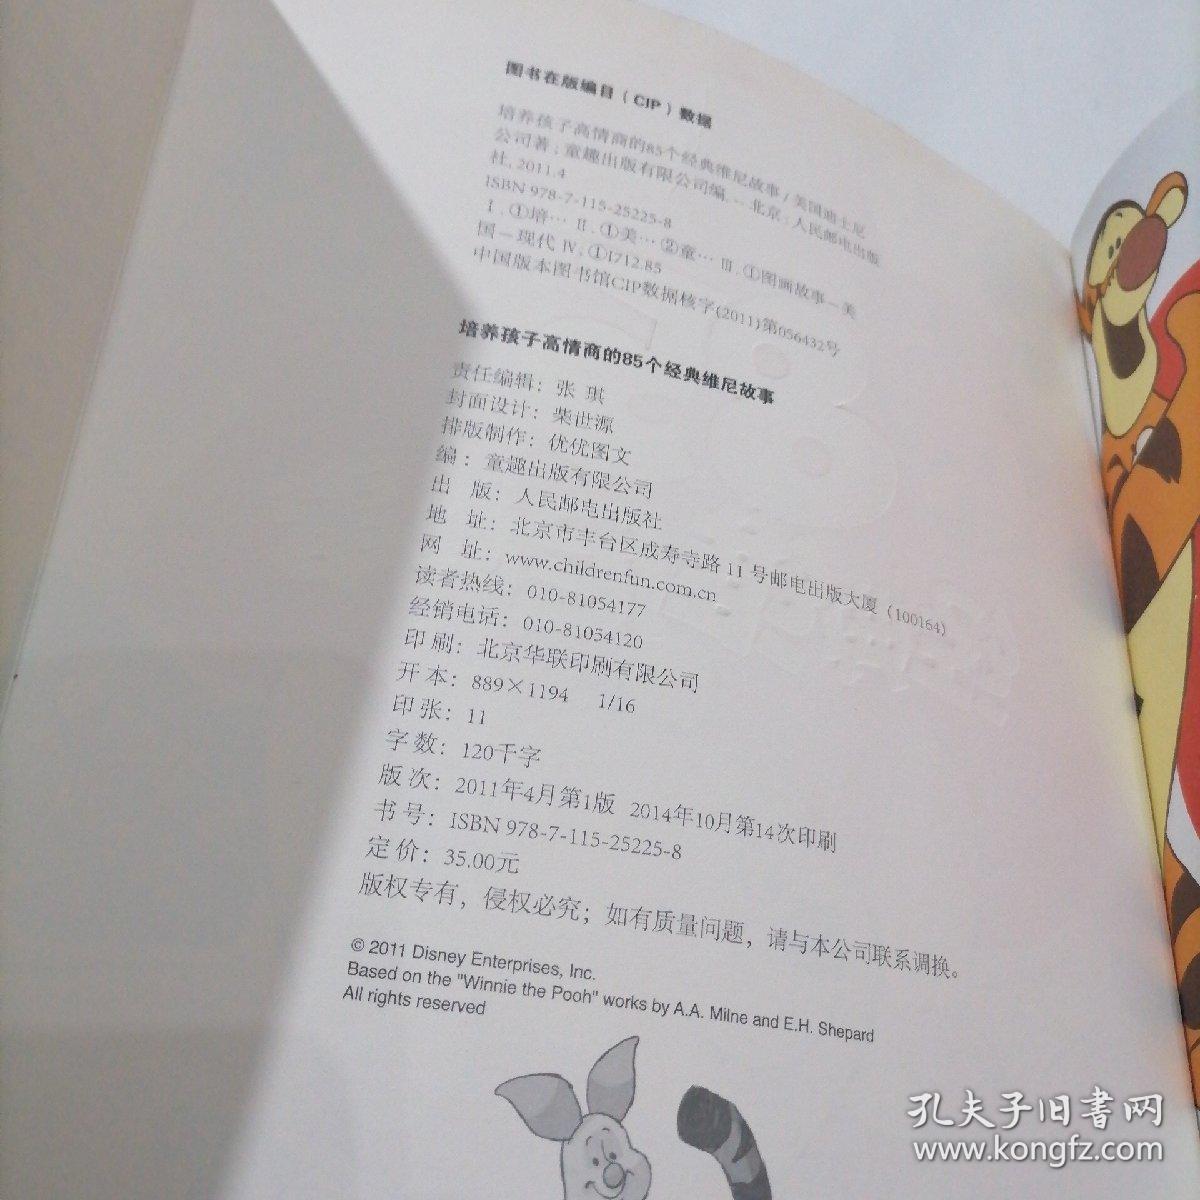 图书在版编目（CIP）数据
培养孩子高情商的85个经典维尼故事/美国迪士尼
公司著；童趣出版有限公司编．--北京：人民邮电出版
社，2011.4
ISBN 978-7-115-25225-8
Ⅰ．①培… Ⅱ．①美… ②童… Ⅲ．①图画故事－美
国－现代 Ⅳ．①I712.85
中国版本图书馆CIP数据核字(2011)第056432号
培养孩子高情商的85个经典维尼故事
责任编辑：张 琪
封面设计：柴世源
排版制作：优优图文
编：童趣出版有限公司
出 版：人民邮电出版社
地 址：北京市丰台区成寿寺路 11 号邮电出版大厦（100164）
网 址：www.childrenfun.com.cn
读者热线：010-81054177
经销电话：010-81054120
印 刷：北京华联印刷有限公司
开 本：889×1194 1/16
印 张：11
字 数：120千字
版 次：2011年4月第1版 2014年10月第14次印刷
书 号：ISBN 978-7-115-25225-8
定 价：35.00元
版权专有，侵权必究；如有质量问题，请与本公司联系调换。
© 2011 Disney Enterprises, Inc.
Based on the "Winnie the Pooh" works by A.A. Milne and E.H. Shepard
All rights reserved
孔夫子旧书网
www.kongfz.com